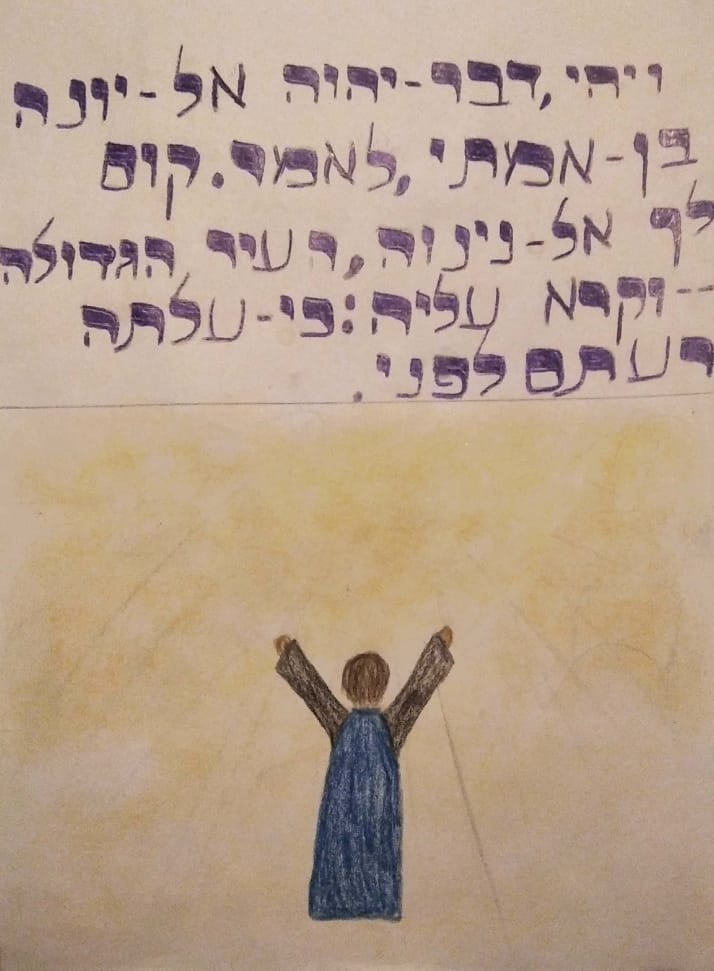 ויהי, דבר-יהוה אל-יונה
בן-אמתי, לאמר. קום
לך אל-נינוה, העיר הגדולה
--וקרא עליה: כי-עלתה
רעתם לפני.